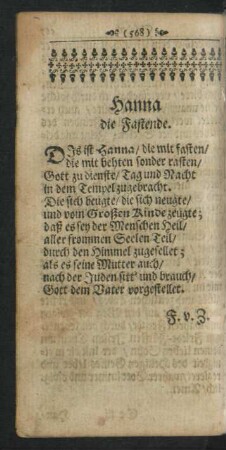 (568)
Hanna
die Fastende.
DJs ist Hanna/ die mit fasten/
die mit behten sonder rasten/
Gott zu dienste/ Tag und Nacht
in dem Tempel zugebracht.
Die sich beugte/ die sich neugte/
und vom Großen Kinde zeugte;
daß es sey der Menschen Heil/
aller frommen Seelen Teil/
durch den Himmel zugesellet;
als es seine Mutter auch/
nach der Juden sitt' und brauch/
Gott dem Vater vorgestellet.
F. v. Z.